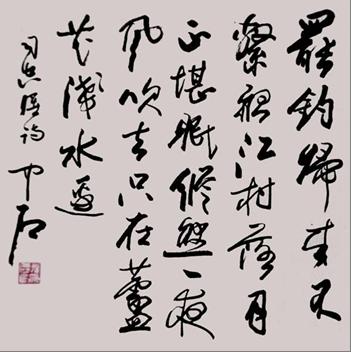 罷釣歸來不
繫船江村落月
正堪眠縱然一夜
風吹去只在蘆
花淺水邊
司空曙詩 中石